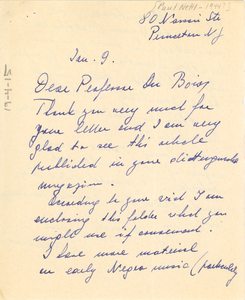 [Paul Nettl - 194?]
80 Nassau Str
Princeton NJ
Jan. 9.
Dear Professor Du Bois,
Thank you very much for
your letter and I am very
glad to see this article
published in your distinguished
magazine.
According to your wish I am
enclosing this folder what you
might use if convenient.
I have more material
on early Negro music (particularly